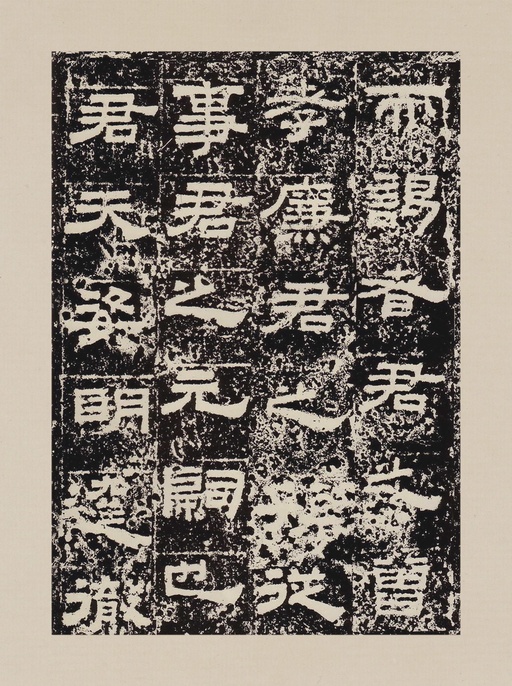 而謁者君之曾
孝廉君之孫從
事君之元嗣也
君天姿眀達徹